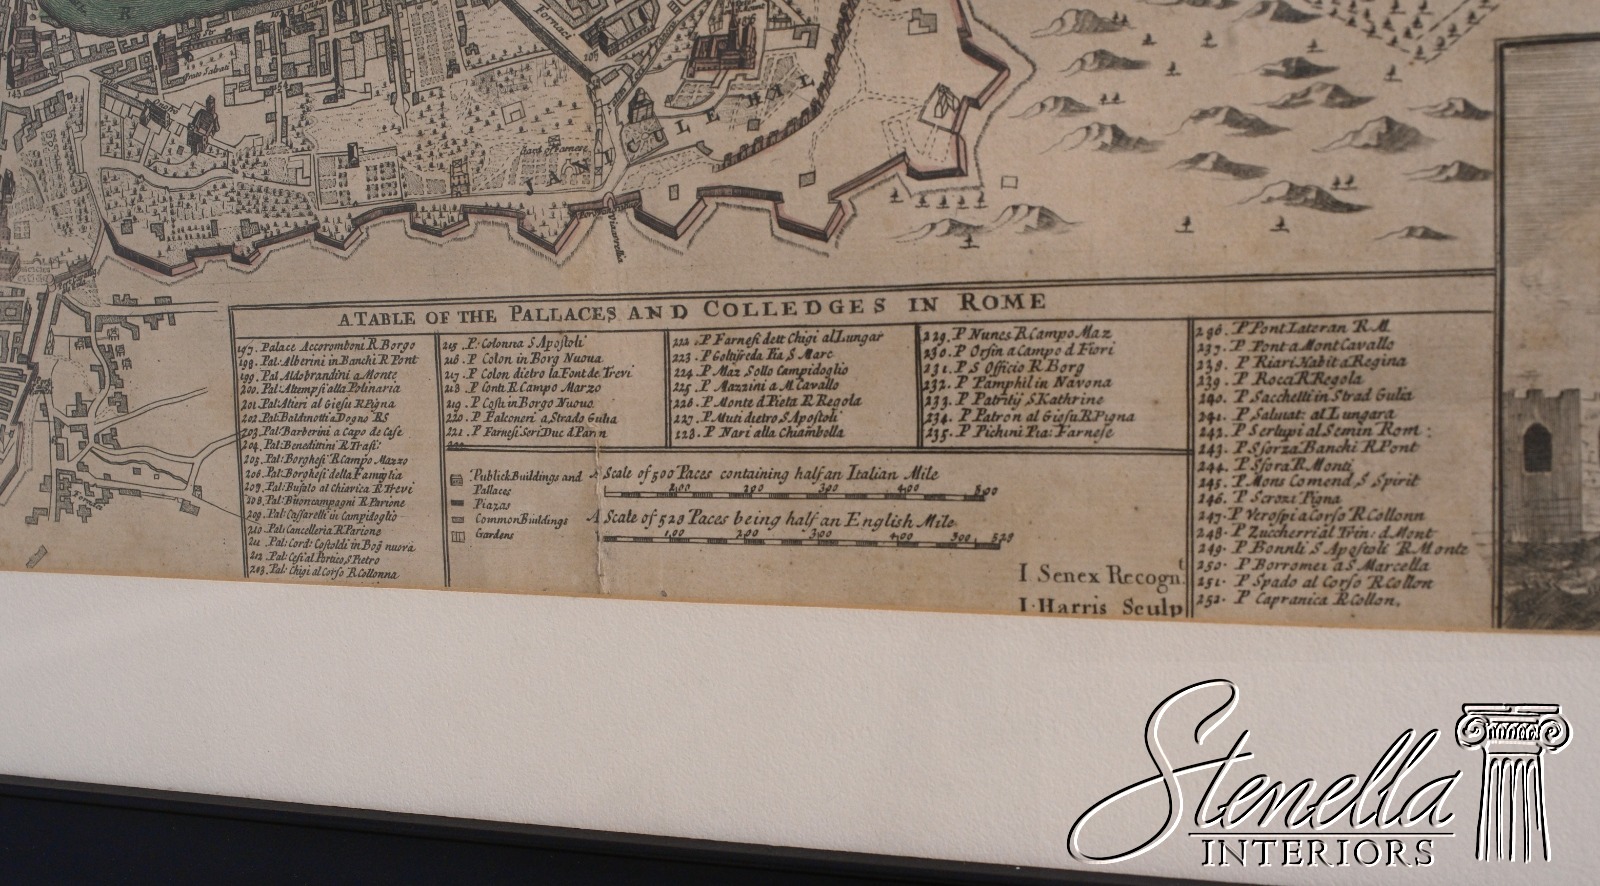 R
Fornaci
Prato Salviati
JANICULE HIL
A TABLE OF THE PALLACES AND COLLEDGES IN ROME
197. Palace Accoromboni R Borgo
198. Pal: Alberini in Banchi R Pont
199. Pal: Aldobrandini a Monte
200. Pal: Altempsi alla Polinaria
201. Pal: Altieri al Giesu R Pigna
202. Pal: Baldinotti a Dogno RS
203. Pal: Barberini a Capo de Case
204. Pal: Benedittini R Trasi:
205. Pal: Borghesi R Campo Mazzo
206. Pal: Borghesi della Famiglia
207. Pal: Bufalo al Chiavica R Trevi
208. Pal: Buoncampagni R Parione
209. Pal: Caffarelli in Campidoglio
210. Pal: Cancelleria R Parione
211. Pal: Cord: Costoldi in Bog nuova
212. Pal: Cesi al Portico, S Pietro
213. Pal: Chigi al Corso R Collonna
215. P. Colonna S Apostoli
216. P Colon in Borg Nuoua
217. P Colon, dietro la Font de Trevi
218. P Conti R Campo Marzo
219. P Costi in Borgo Nuouo
220. P Falconeri a Strado Gulia
221. P Farnesi Seri Duc d Parm
222. P Farnesi dett Chigi al Lungar
223. P Goltifreda Pia S Marc
224. P Maz Sollo Campidoglio
225. P Mazzini a M Cavallo
226. P Monte d Pieta R Regola
227. P Muti dietro S Apostoli
228. P Nari alla Chiambella
229. P Nunes R Campo Maz
230. P Orsin a Campo d Fiori
231. P S Officio R Borg
232. P Pamphil in Navona
233. P Patritij S Kathrine
234. P Patron al Giesu R Pigna
235. P Pichini Pia: Farnese
236. P Pont Lateran R M
237. P Pont a Mont Cavallo
238. P Riari Habit a Regina
239. P Roca R Regola
240. P Sacchelli in Strad Gulia
241. P Saluiat: al Lungara
242. P Sertupi al Semin Rom:
243. P Sforza Banchi R Pont
244. P Sfora R Monti
245. P Mons Comend, S Spirit
246. P Scrozi Pigna
247. P Verospi a Corso R Collonn
248. P Zuccherri al Trin: d Mont
249. P Bonnli S Apostoli R Monte
250. P Borromei a S Marcella
251. P Spado al Corso R Collon
252. P Capranica R Collon,
Publick Buildings and
Pallaces
Piazas
Common Buildings
Gardens
A Scale of 500 Paces containing half an Italian Mile
200 300 400 500
A Scale of 528 Paces being half an English Mile
100 200 300 400 500 528
I Senex Recogn.t
I. Harris Sculp
Stenella
INTERIORS